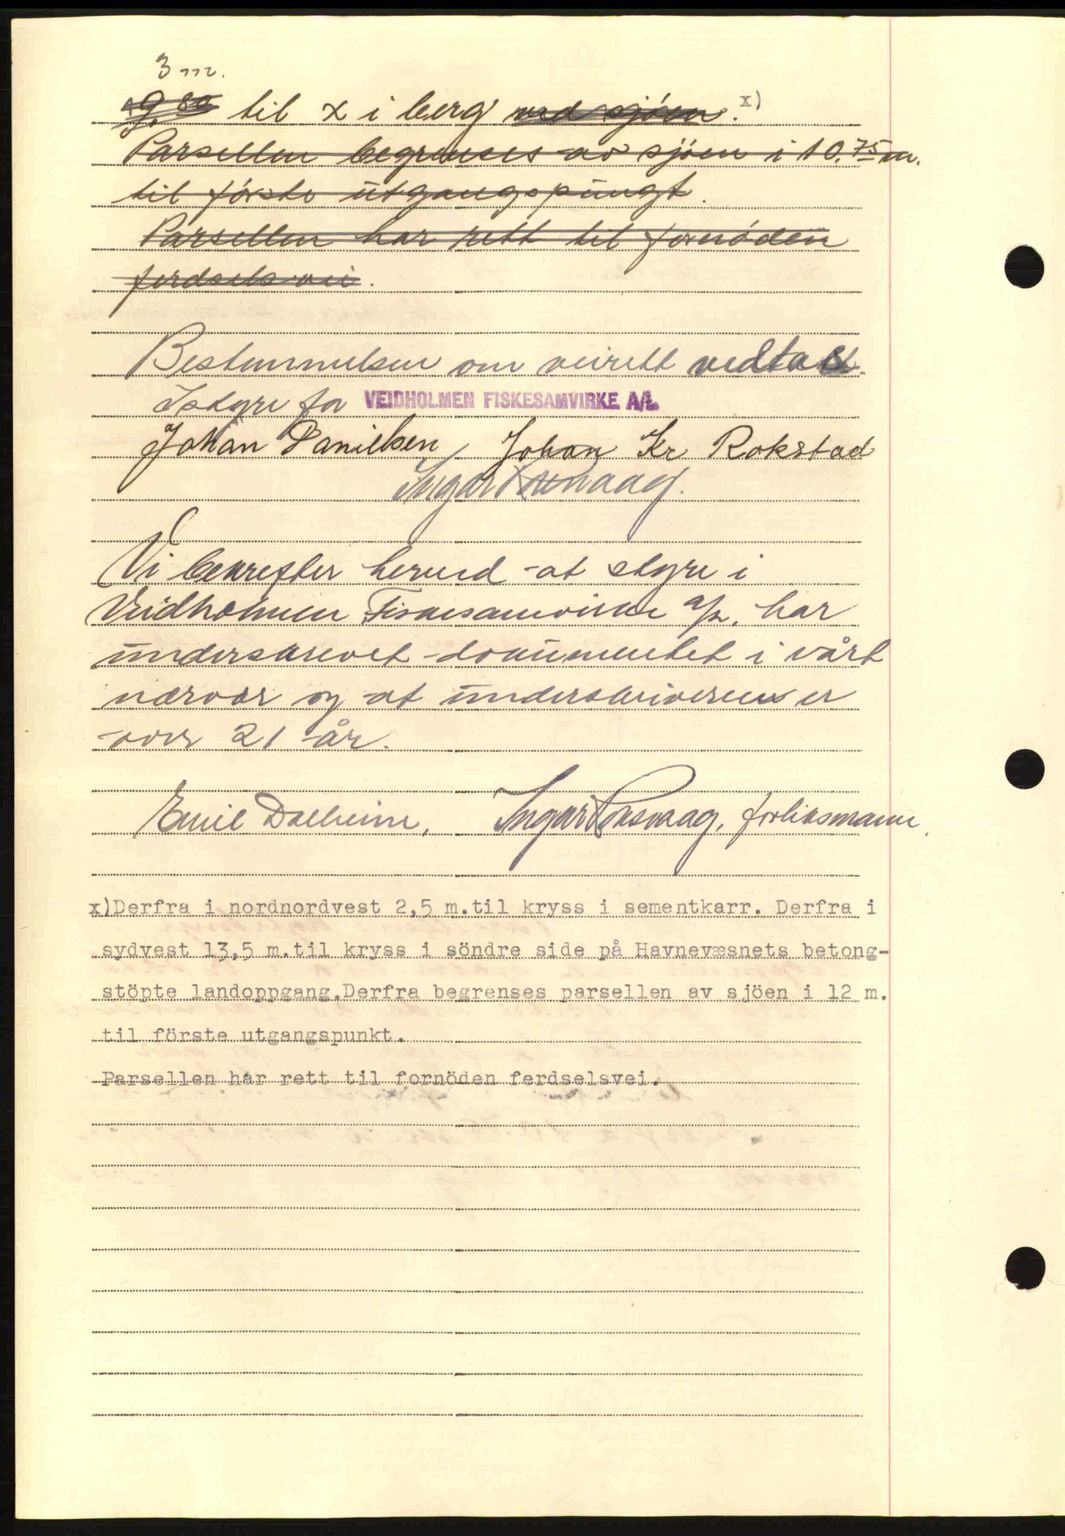 3 m.
19.80 til x i berg ved sjöen. x)
Parsellen begrenses av sjöen i 10.75 m.
til første utgangspungt.
Parsellen har rett til fornöden
ferdselsvei.
Bestemmelsen om veirett vedtatt.
I styre for VEIDHOLMEN FISKESAMVIRKE A/L
Johan Danielsen, Johan Kr Rokstad
Ingar
Vi bekrefter herved at styre i
Veidholmen Fiskesamvirke a/l. har
underskrevet dokumentet i vårt
nærvær og at underskriverne er
over 21 år.
Emil Dalheim, Ingar forliksmann.
x)Derfra i nordnordvest 2,5 m.til kryss i sementkarr. Derfra i
sydvest 13,5 m.til kryss i söndre side på Havnevæsnets betong-
stöpte landoppgang.Derfra begrenses parsellen av sjöen i 12 m.
til förste utgangspunkt.
Parsellen har rett til fornöden ferdselsvei.